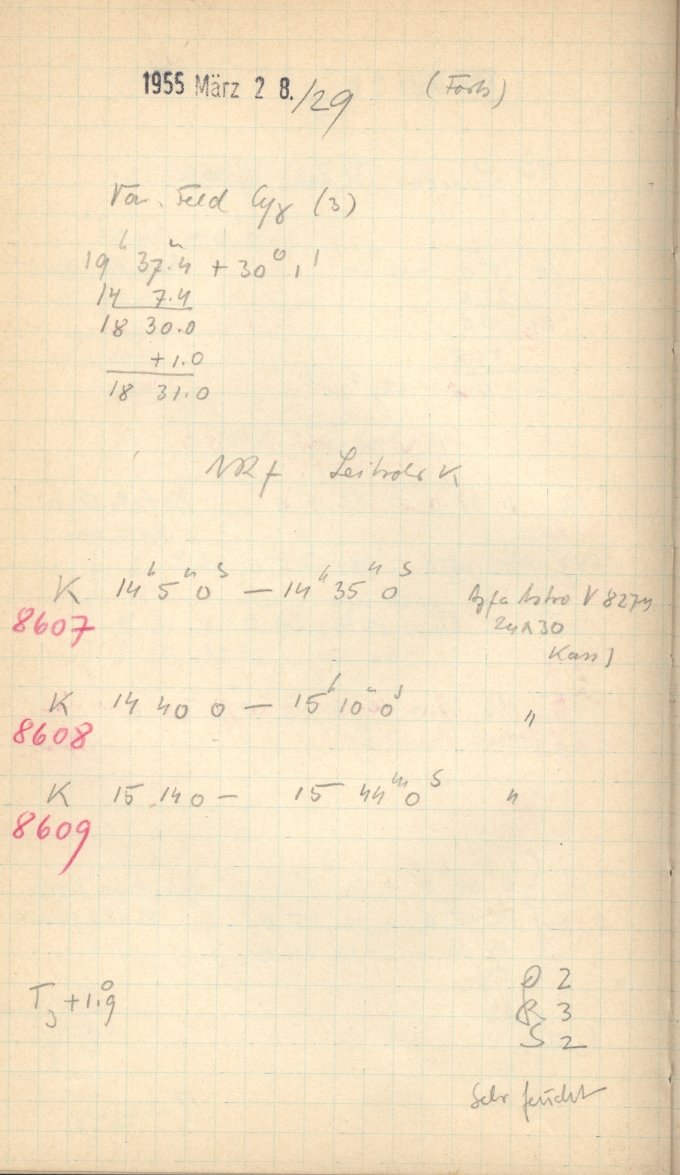 1955 März 28./29 (Forts)
Var. Feld Cyg (3)
19ʰ 37.ᵐ4 + 30° 1'
14 7.4
18 30.0
+1.0
18 31.0
K 14ʰ 5ᵐ 0ˢ — 14ʰ 35ᵐ 0ˢ Agfa Astro
8607
24x30
K 14 40 0 — 15ʰ 10ᵐ 0ˢ "
8608
K 15 14 0 — 15 44ᵐ 0ˢ "
8609
O 2
T +1.°9 R 3
S 2
Sehr feucht